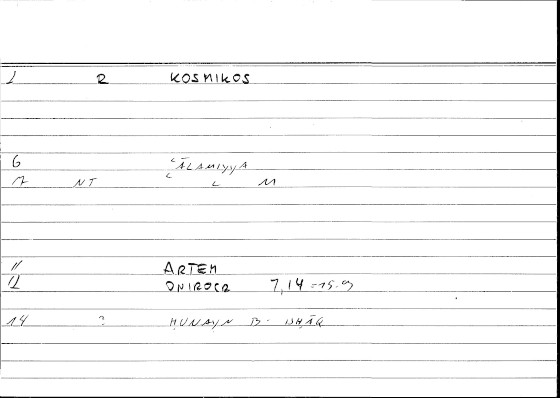 1 R KOSMIKOS
6 ʿĀLAMIYYA
7 NT L M
11 ARTEM
12 ONIROCR 7,14 = 15.9
14 ? HUNAYN B. ISHĀQ